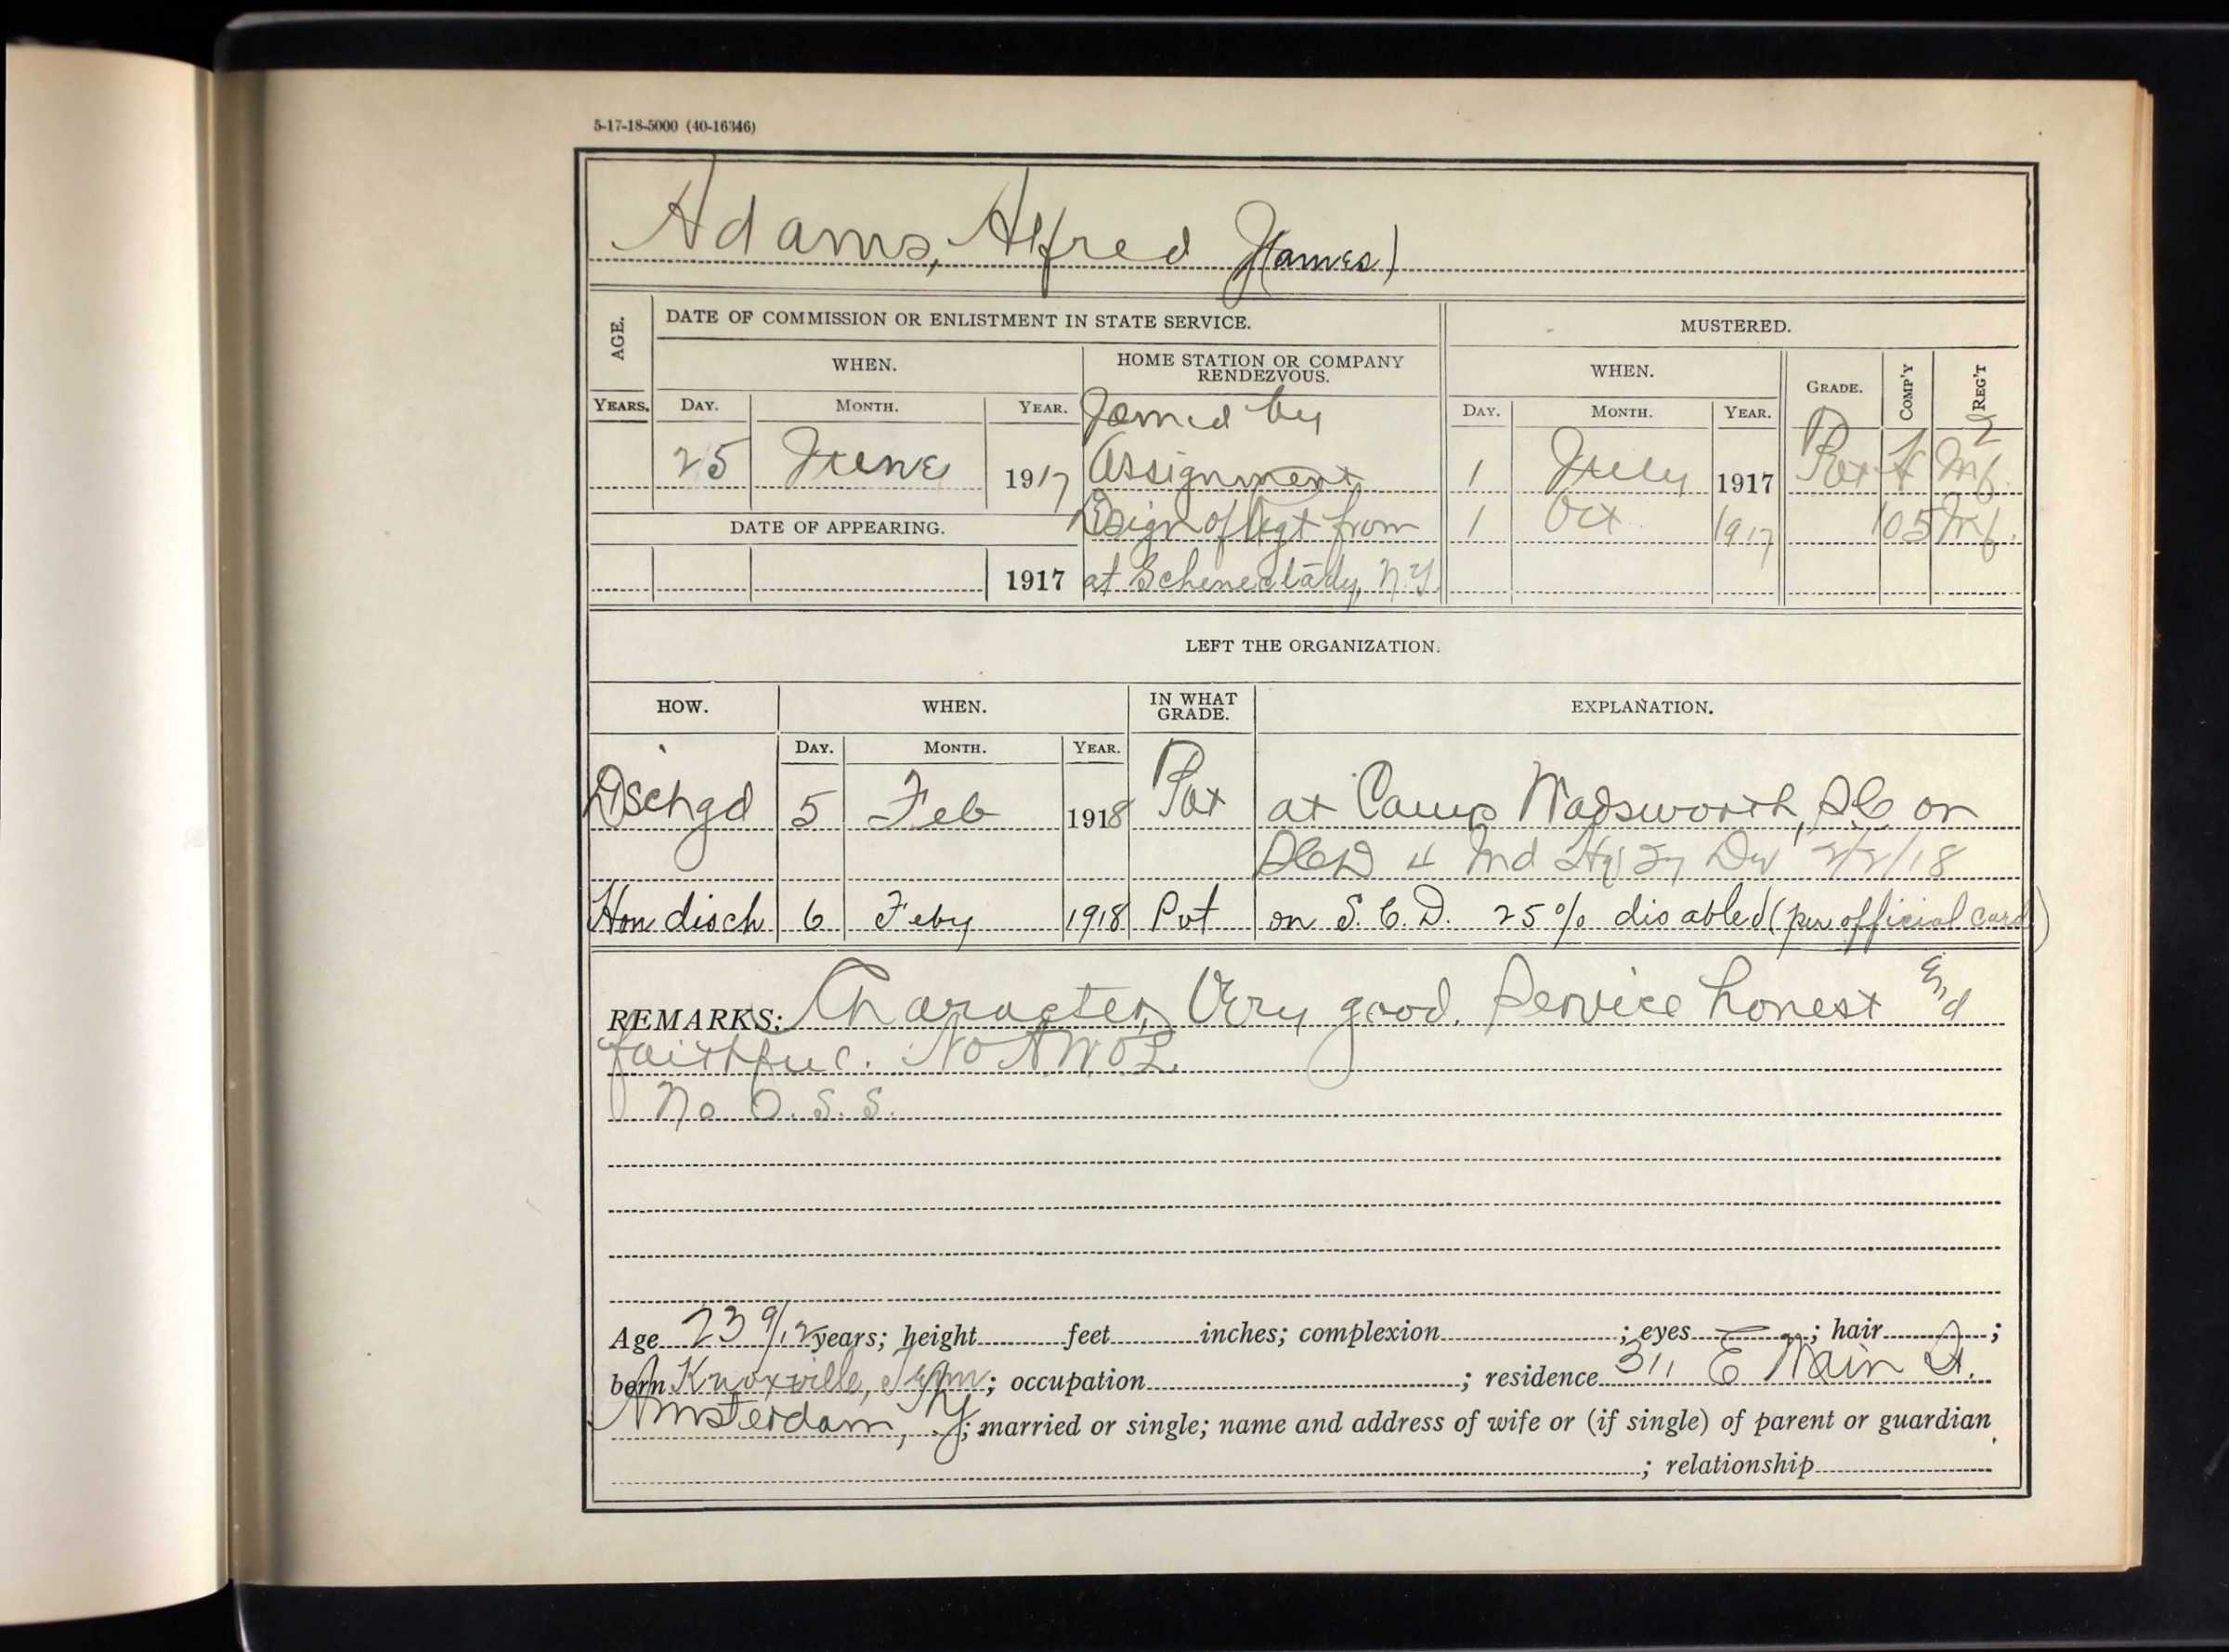 5-17-18-5000 (40-16346)
Adams, Alfred J(ames)
AGE.
DATE OF COMMISSION OR ENLISTMENT IN STATE SERVICE.
MUSTERED.
WHEN.
HOME STATION OR COMPANY RENDEZVOUS.
WHEN.
GRADE.
COMP'Y
REG'T
YEARS. DAY. MONTH. YEAR.
DAY. MONTH. YEAR.
Joined by
25 June 1917 Assignment 1 July 1917 Pvt 2 Inf.
DATE OF APPEARING.
from 1 Oct 1917 105 Inf.
1917 at Schenectady, N.Y.
LEFT THE ORGANIZATION.
HOW. WHEN. IN WHAT GRADE. EXPLANATION.
DAY. MONTH. YEAR.
Dschgd 5 Feb 1918 Pvt at Camp Wadsworth, SC on
SCD 4 Ind Hq 27 Div 2/2/18
Hon disch 6 Feby 1918 Pvt on S.C.D. 25% disabled (per official card)
REMARKS: Character, Very good. Service honest and
faithful. No AWOL.
No O.S.S.
Age 23 9/12 years; height feet inches; complexion ; eyes ; hair ;
born Knoxville, Tenn; occupation ; residence 311 E Main St.
Amsterdam, NY; married or single; name and address of wife or (if single) of parent or guardian
; relationship